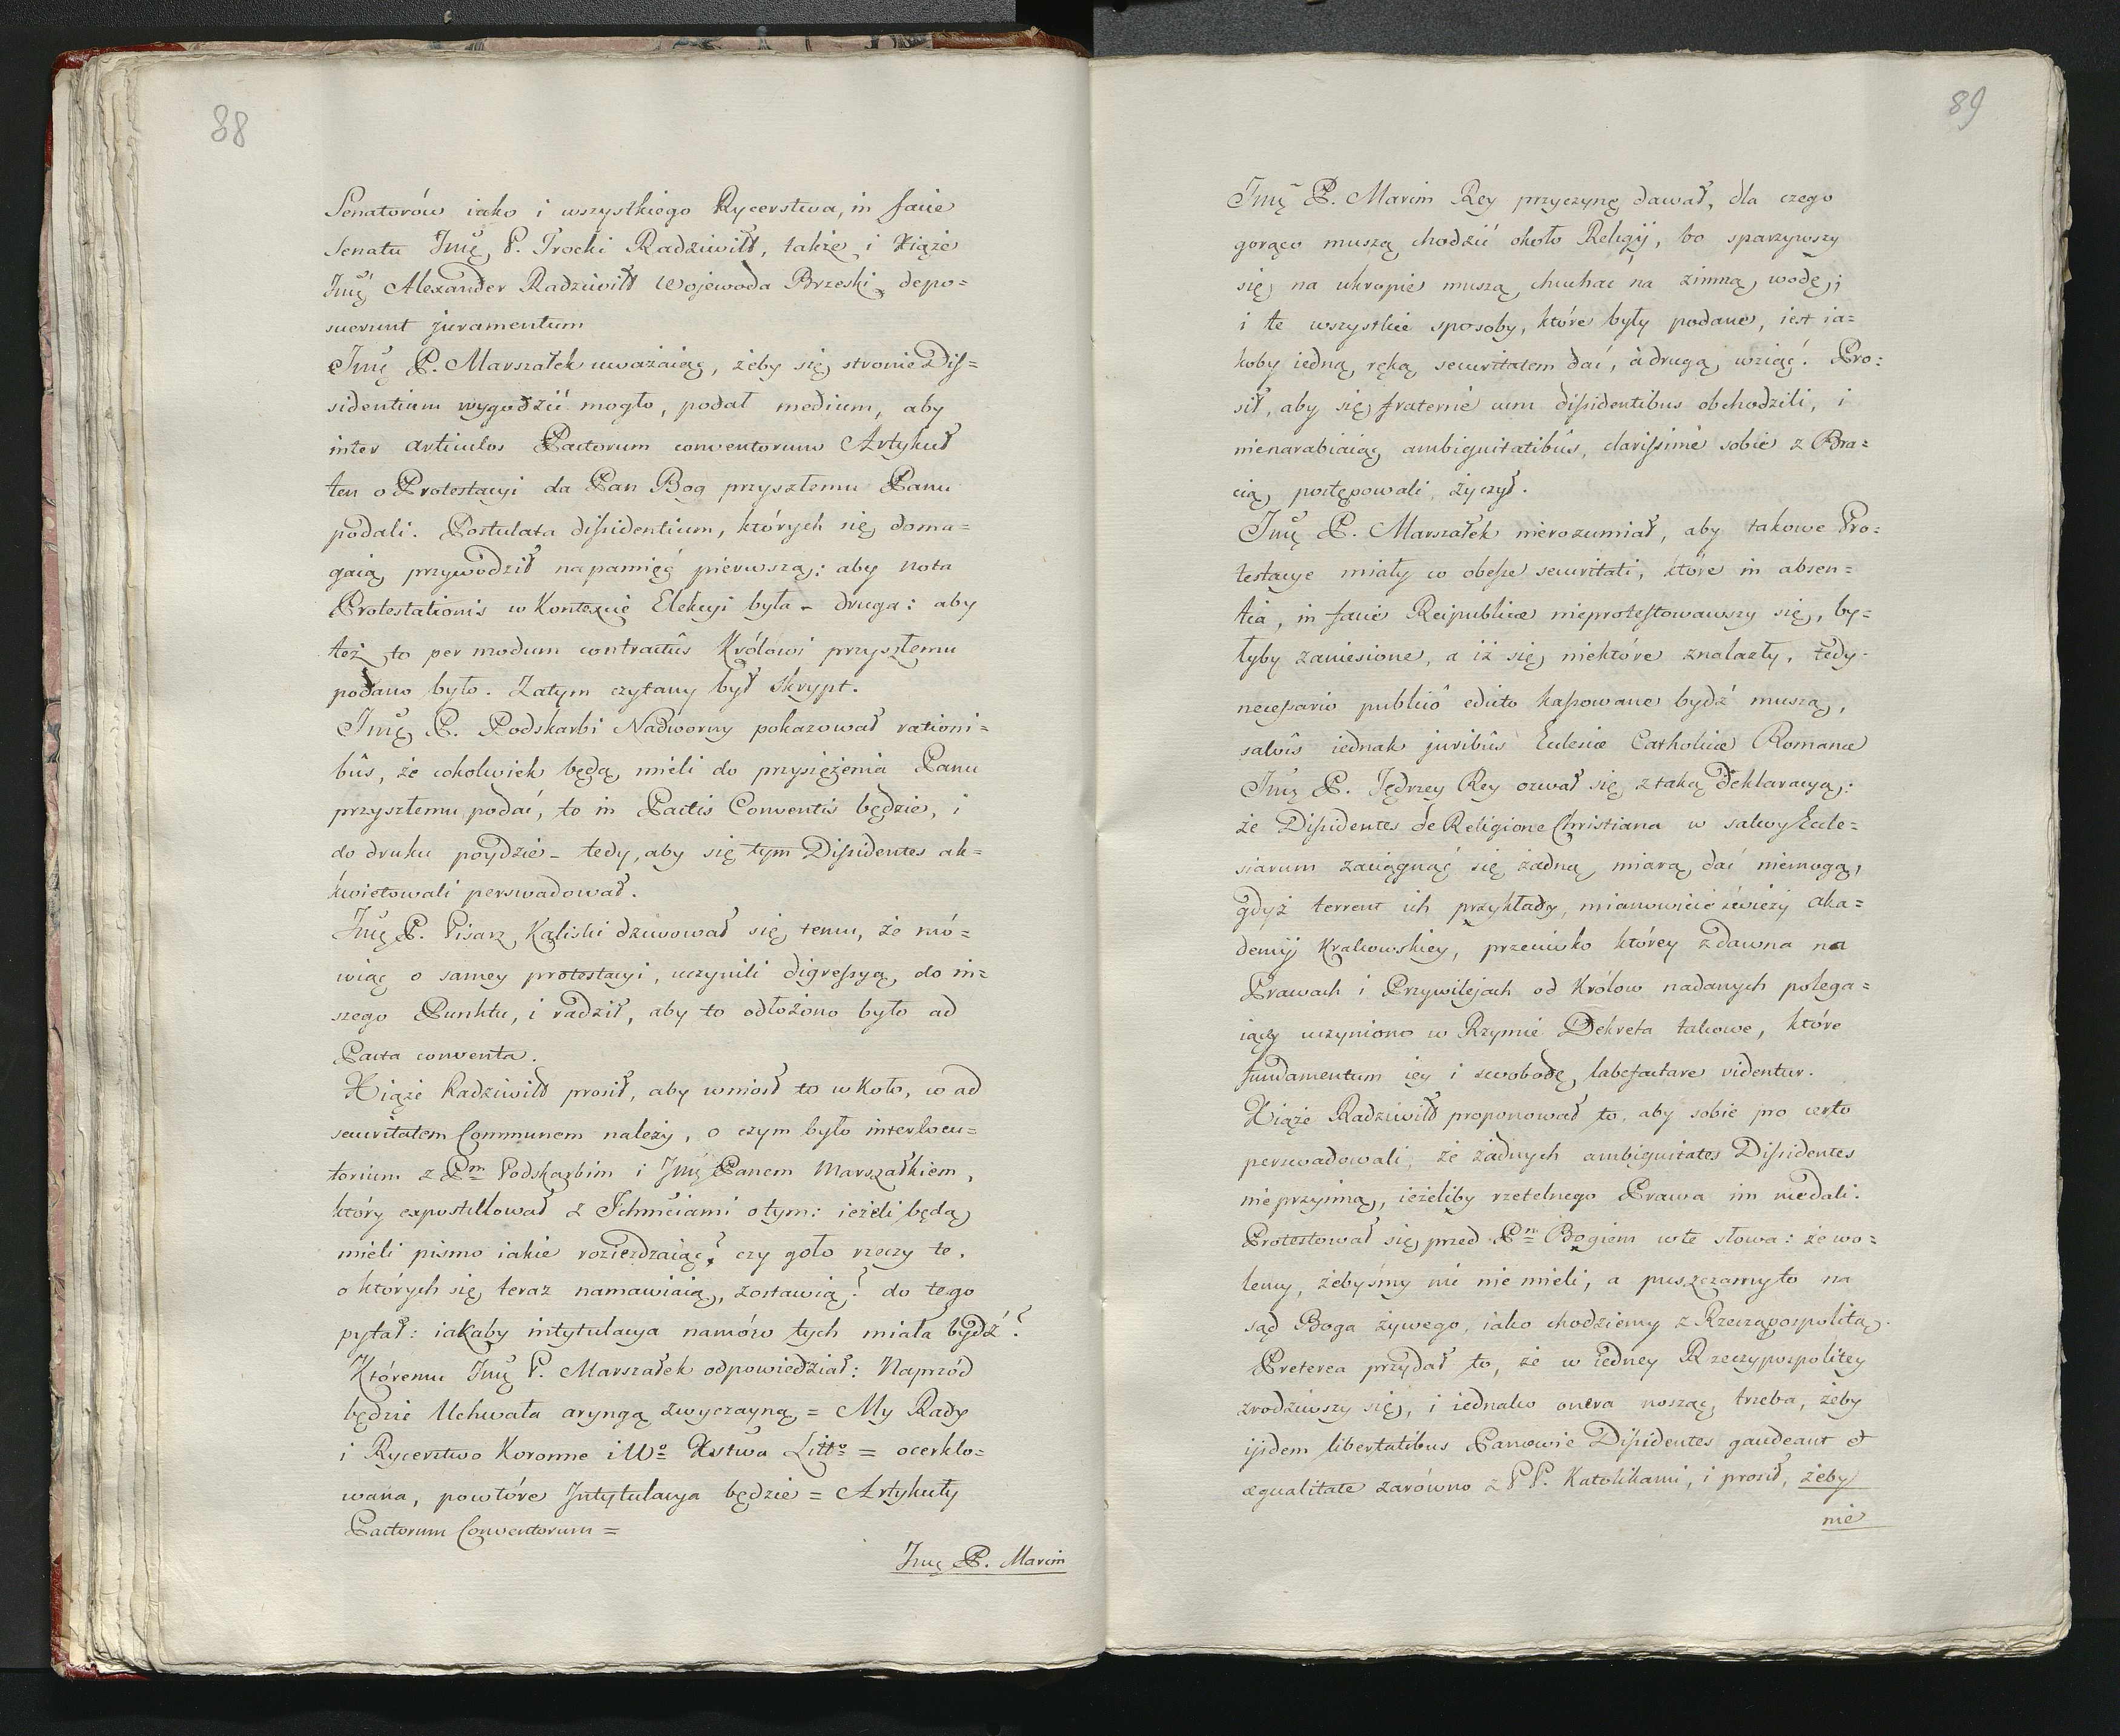 88
Senatorów iako i wszystkiego Rycerstwa, in facie
Senatu Jmę P. Trocki Radziwiłł, także i Xiąże
Jmę Alexander Radziwiłł Wojewoda Brzeski depo=
suerunt juramentum
Jmę P. Marszałek uważaiąc, żeby się stronie Diſ=
sidentium wygodzić mogło, podał medium, aby
inter articulos Pactorum conventorum Artykuł
ten o Protestacyi da Pan Bog przyszłemu Panu
podali. Postulata diſsidentium, których się doma=
gaią, przywodził na pamięć pierwszą: aby nota
Protestationis w Kontexcie Elekcyi była – druga: aby
też to per modum contractûs Królowi przyszłemu
podano było. Zatym czytany był skrypt.
Jmę P. Podskarbi Nadworny pokazował rationi=
bûs, że cokolwiek będą mieli do przysiężenia Panu
przyszłemu podać, to in Pactis Conventis będzie, i
do druku poydzie – tedy, aby się tym Diſsidentes ak=
kwietowali perswadował.
Jmę P. Pisarz Kaliski dziwował się temu, że mó=
wiąc o samey protestacyi, uczynili digreſsyą do in=
szego Punktu, i radził, aby to odłożono było ad
Pacta conventa.
Xiąże Radziwiłł prosił, aby wniosł to w Koło, co ad
securitatem Communem należy, o czym było interlocu=
torium z Pm Podskarbim i Jmę Panem Marszałkiem,
który expostulował z Ichmciami o tym: ieżeli będą
mieli pismo iakie rozieżdzaiąc? czy goło rzeczy te,
o których się teraz namawiaią, zostawią? do tego
pytał: iakaby intytulacya namów tych miała bydź?
Któremu Jmę P. Marszałek odpowiedział: Naprzód
będzie Uchwała aryngą zwyczayną = My Rady
i Rycerstwo Koronne i Wo Xstwa Litto = ocerklo=
wana, powtóre Jntytulacya będzie = Artykuły
Pactorum Conventorum =
Jmę P. Marcin
89
Jmę P. Marcin Rey przyczynę dawał, dla czego
gorąco muszą chodzić około Religij, bo sparzywszy
się na ukropie muszą chuchać na zimną wodę;
i te wszystkie sposoby, które były podane, iest ia=
koby iedną ręką securitatem dać, à drugą wziąć. Pro=
sił, aby się fraternè cum diſsidentibus obchodzili, i
nienarabiaiąc ambiguitatibus, clariſsimè sobie z Bra=
cią postępowali, życzył.
Jmę P. Marszałek nierozumiał, aby takowe Pro=
testacye miały co obeſse securitati, które in absen=
tia, in facie Reipublicæ nieprotestowawszy się, by=
łyby zaniesione, a iż się niektóre znalazły, tedy
neceſsario publicô edicto kaſsowane bydź muszą,
salvis iednak juribûs Eclesiæ Catholicæ Romanæ
Jmę P. Jędrzey Rey ozwał się z taką Deklaracyą:
że Diſsidentes de Religione Christiana w salwy Ecle=
siarum zaciągnąć się żadną miarą dać niemogą,
gdyż terrent ich przykłady, mianowicie świeży aka=
demij Krakowskiey, przeciwko którey zdawna na
Prawach i Przywilejach od Królow nadanych polega=
iący uczyniono w Rzymie Dekreta takowe, które
fundamentum iey i swobodę labefactare videntur.
Xiąże Radziwiłł proponował to, aby sobie pro certo
perswadowali, że żadnych ambiguitates Diſsidentes
nie przyimą, ieżeliby rzetelnego Prawa im niedali.
Protestował się przed Pm Bogiem w te słowa: że wo=
lemy, żebyśmy nic nie mieli, a puszczamy to na
sąd Boga żywego, iako chodziemy z Rzecząpospolitą.
Preterea przydał to, że w iedney Rzeczypospolitey
zrodziwszy się, i iednako onera nosząc, trzeba, żeby
ijsdem libertatibus Panowie Diſsidentes gaudeant et
æqualitate zarówno z PP. Katolikami, i prosił, żeby
nie